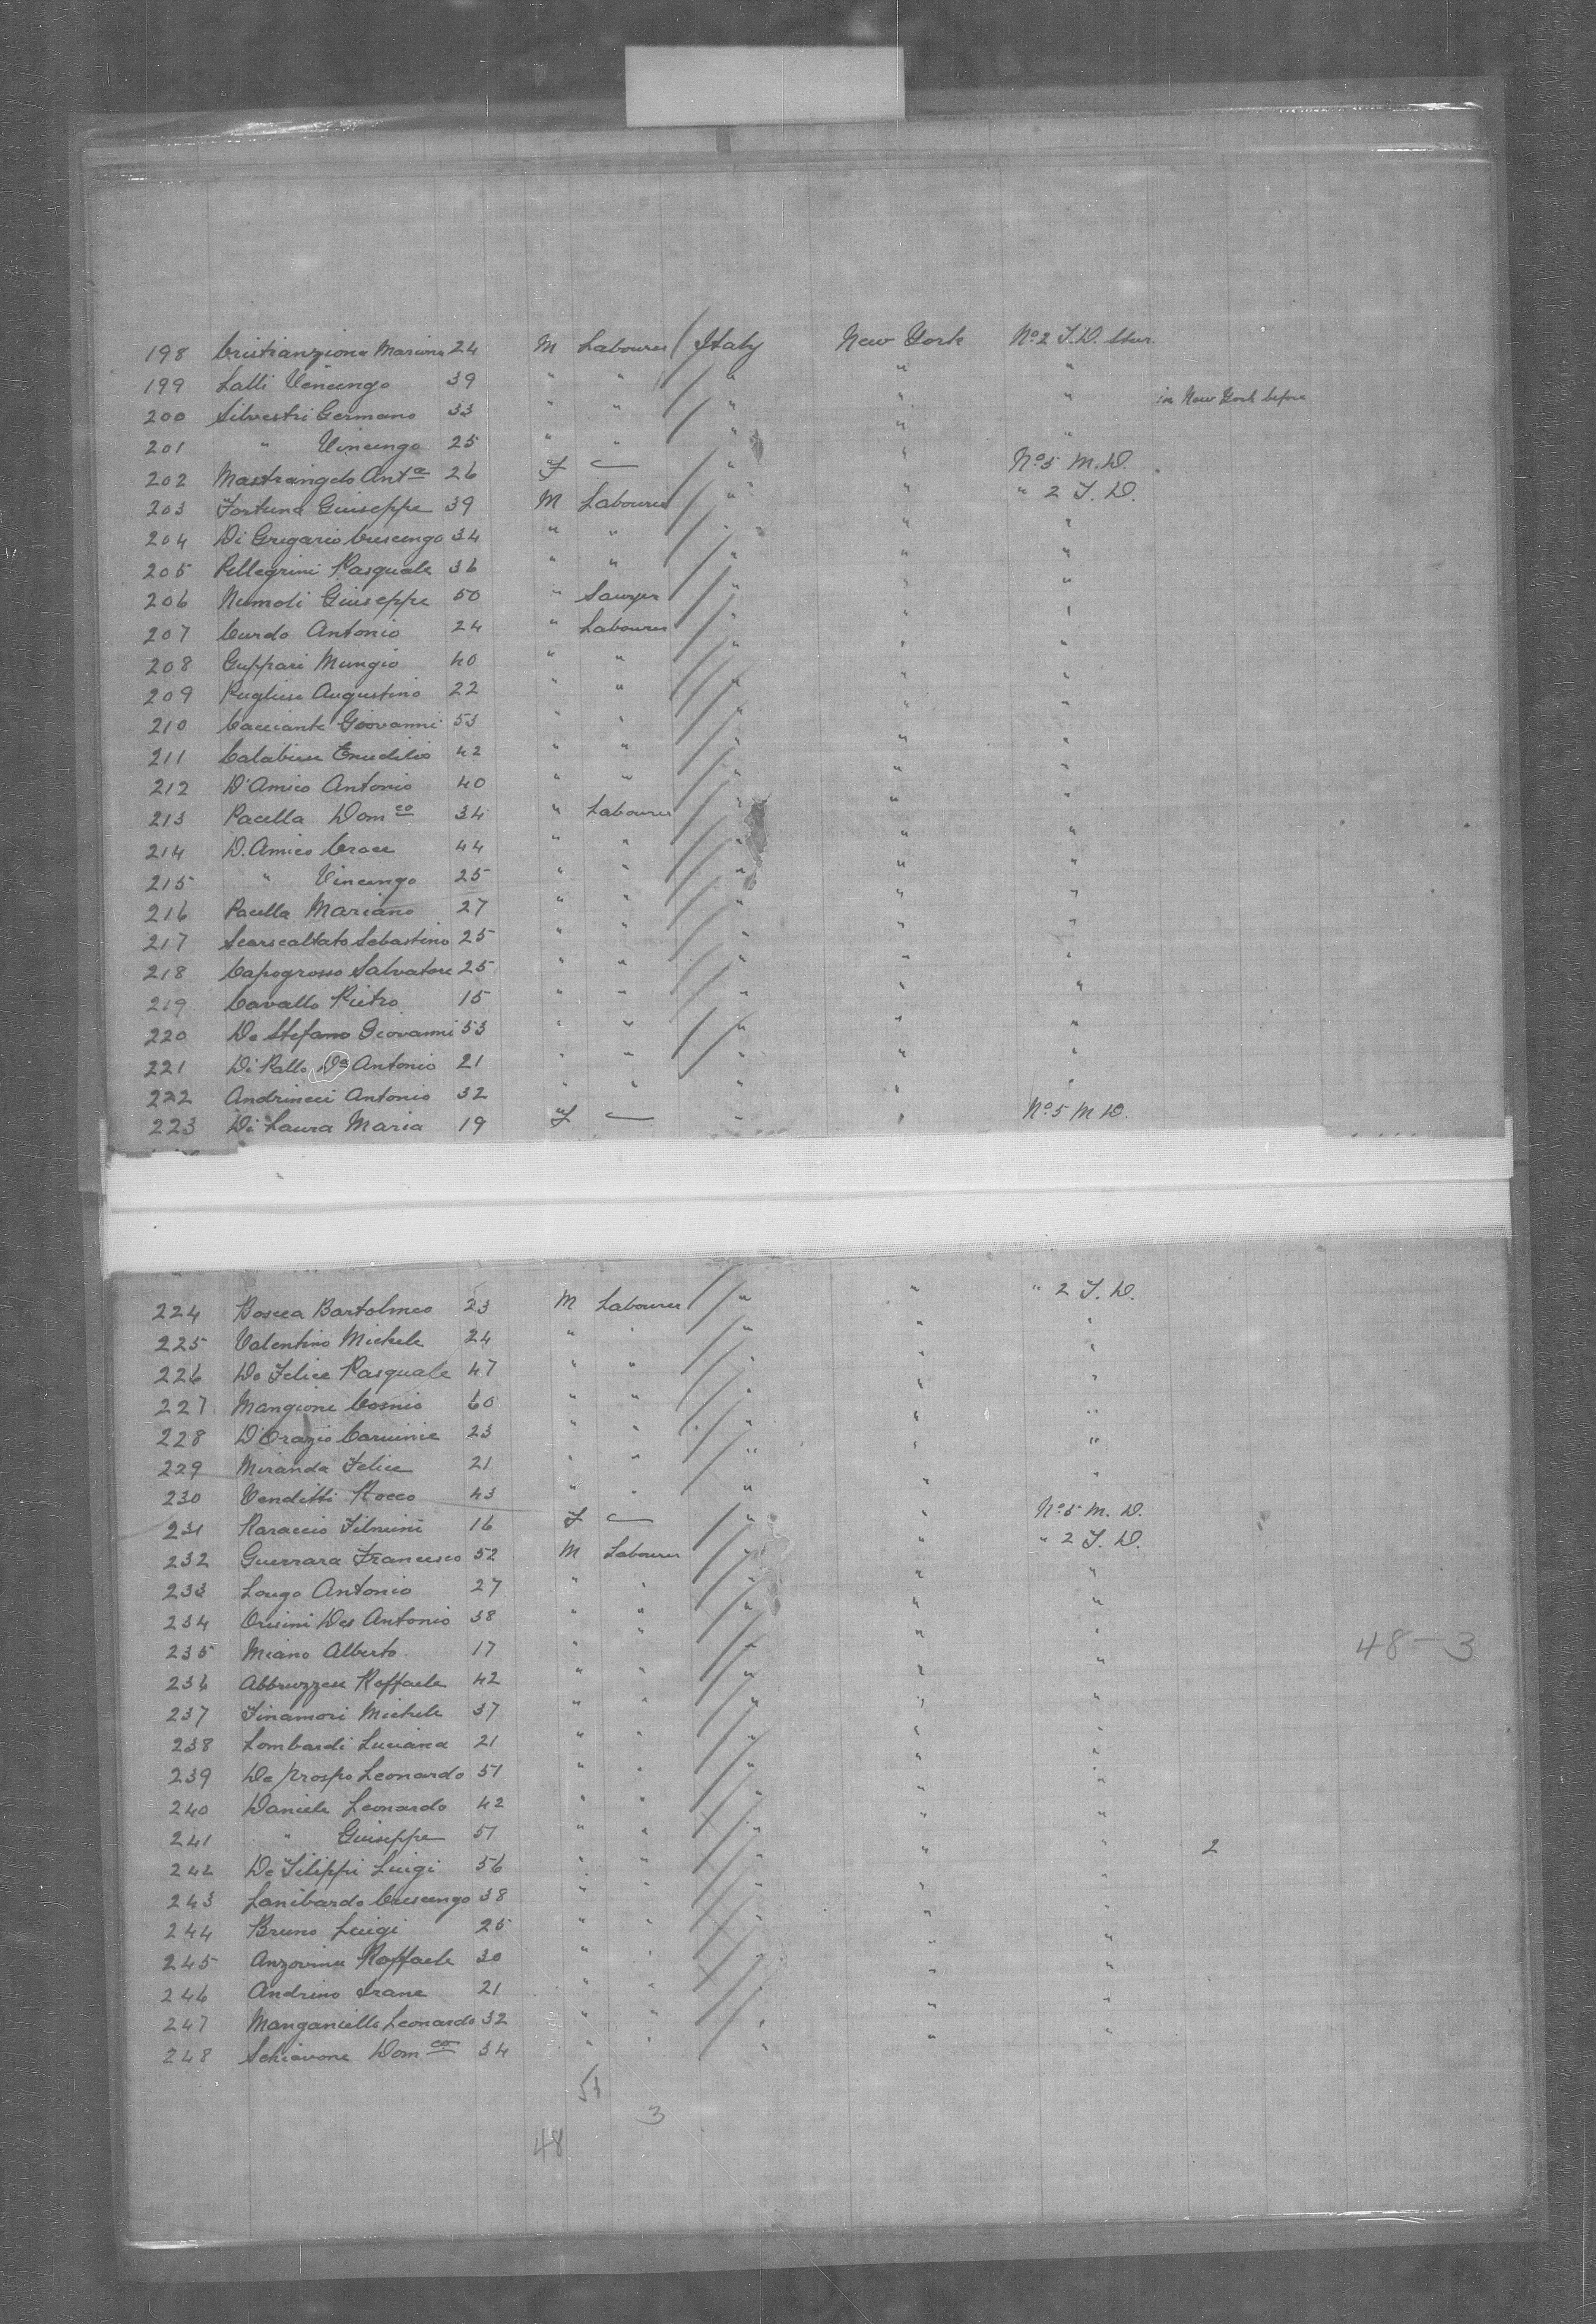 198 Cristianziona Mariona 24 M Labourer Italy New York No 2 T.D. Stur.
199 Lalli Vincenzo 39 " " " " "
200 Silvestri Germano 33 " " " " " in New York before
201 " Vincenzo 25 " " " " "
202 Mastrangelo Anta 26 F — " " No 5 M.D.
203 Fortuna Giuseppe 39 M Labourer " " " 2 T.D.
204 Di Gregario Crescenzo 34 " " " " "
205 Pellegrini Pasquale 36 " " " " "
206 Numoli Giuseppe 50 " Sawyer " " "
207 Curdo Antonio 24 " Labourer " " "
208 Guppari Mungio 40 " " " " "
209 Pugliese Augustino 22 " " " " "
210 Cacciante Giovanni 53 " " " " "
211 Calabrese Emidilio 42 " " " " "
212 D'Amico Antonio 40 " " " " "
213 Pacella Domco 34 " Labourer " " "
214 D.Amico Croce 44 " " " " "
215 " Vincenzo 25 " " " " "
216 Pacella Mariano 27 " " " " "
217 Scarscaltato Sebastino 25 " " " " "
218 Capogrosso Salvatore 25 " " " " "
219 Cavallo Pietro 15 " " " " "
220 De Stefano Giovanni 53 " " " " "
221 Di Rallo Do Antonio 21 " " " " "
222 Andrineci Antonio 32 " " " " "
223 Di Laura Maria 19 F — " " No 5 M D.
224 Boscca Bartolmeo 23 M Labourer " " " 2 T.D.
225 Valentino Michele 24 " " " " "
226 De Felice Pasquale 47 " " " " "
227 Mangione Cosmio 60 " " " " "
228 D'Orazio Carminie 23 " " " " "
229 Miranda Felice 21 " " " " "
230 Venditti Rocco 43 " " " " "
231 Raraccio Filmini 16 F — " " No 5 M.D.
232 Guerrara Francesco 52 M Labourer " " " 2 T.D.
233 Longo Antonio 27 " " " " "
234 Orisini Des Antonio 38 " " " " "
235 Miano Alberto 17 " " " " " 48–3
236 Abbruzzese Raffaele 42 " " " " "
237 Finamori Michele 37 " " " " "
238 Lombardi Luciana 21 " " " " "
239 De Prospo Leonardo 51 " " " " "
240 Daniele Leonardo 42 " " " " "
241 " Giuseppe 51 " " " " " 2
242 De Filippi Luigi 56 " " " " "
243 Lanibardo Crescenzo 38 " " " " "
244 Bruno Luigi 25 " " " " "
245 Anzovinu Raffaele 30 " " " " "
246 Andrino Franc 21 " " " " "
247 Manganiello Leonardo 32 " " " " "
248 Schiavone Domco 34 " " " " "
51
3
48